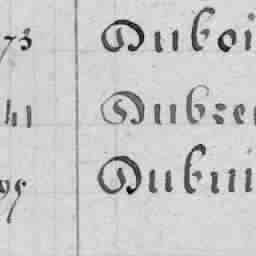 73 Duboi
41 Dubre
95 Dubui